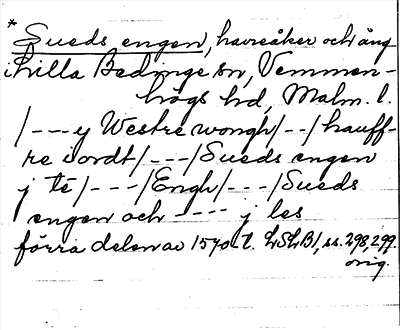 * Sueds engen, havreåker och äng
i Lilla Beddinge sn, Vemmen-
högs hd, Malm. l.
/---y Westre wongh/--/hauff-
re iordt/---/Sueds engen
j tē/---/Engh/---/Sueds
engen och ---- j les
förra delen av 1570-t. LSLB1, ss. 298, 299.
orig.